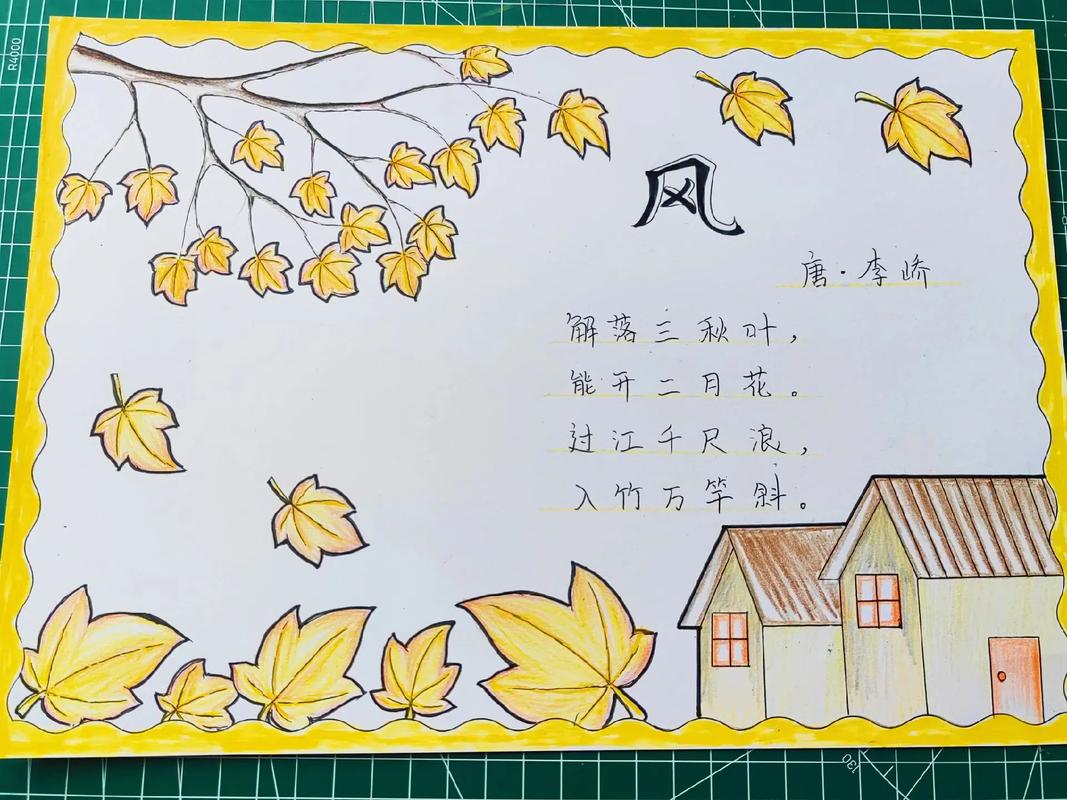 风
唐·李峤
解落三秋叶，
能开二月花。
过江千尺浪，
入竹万竿斜。
R4000
130